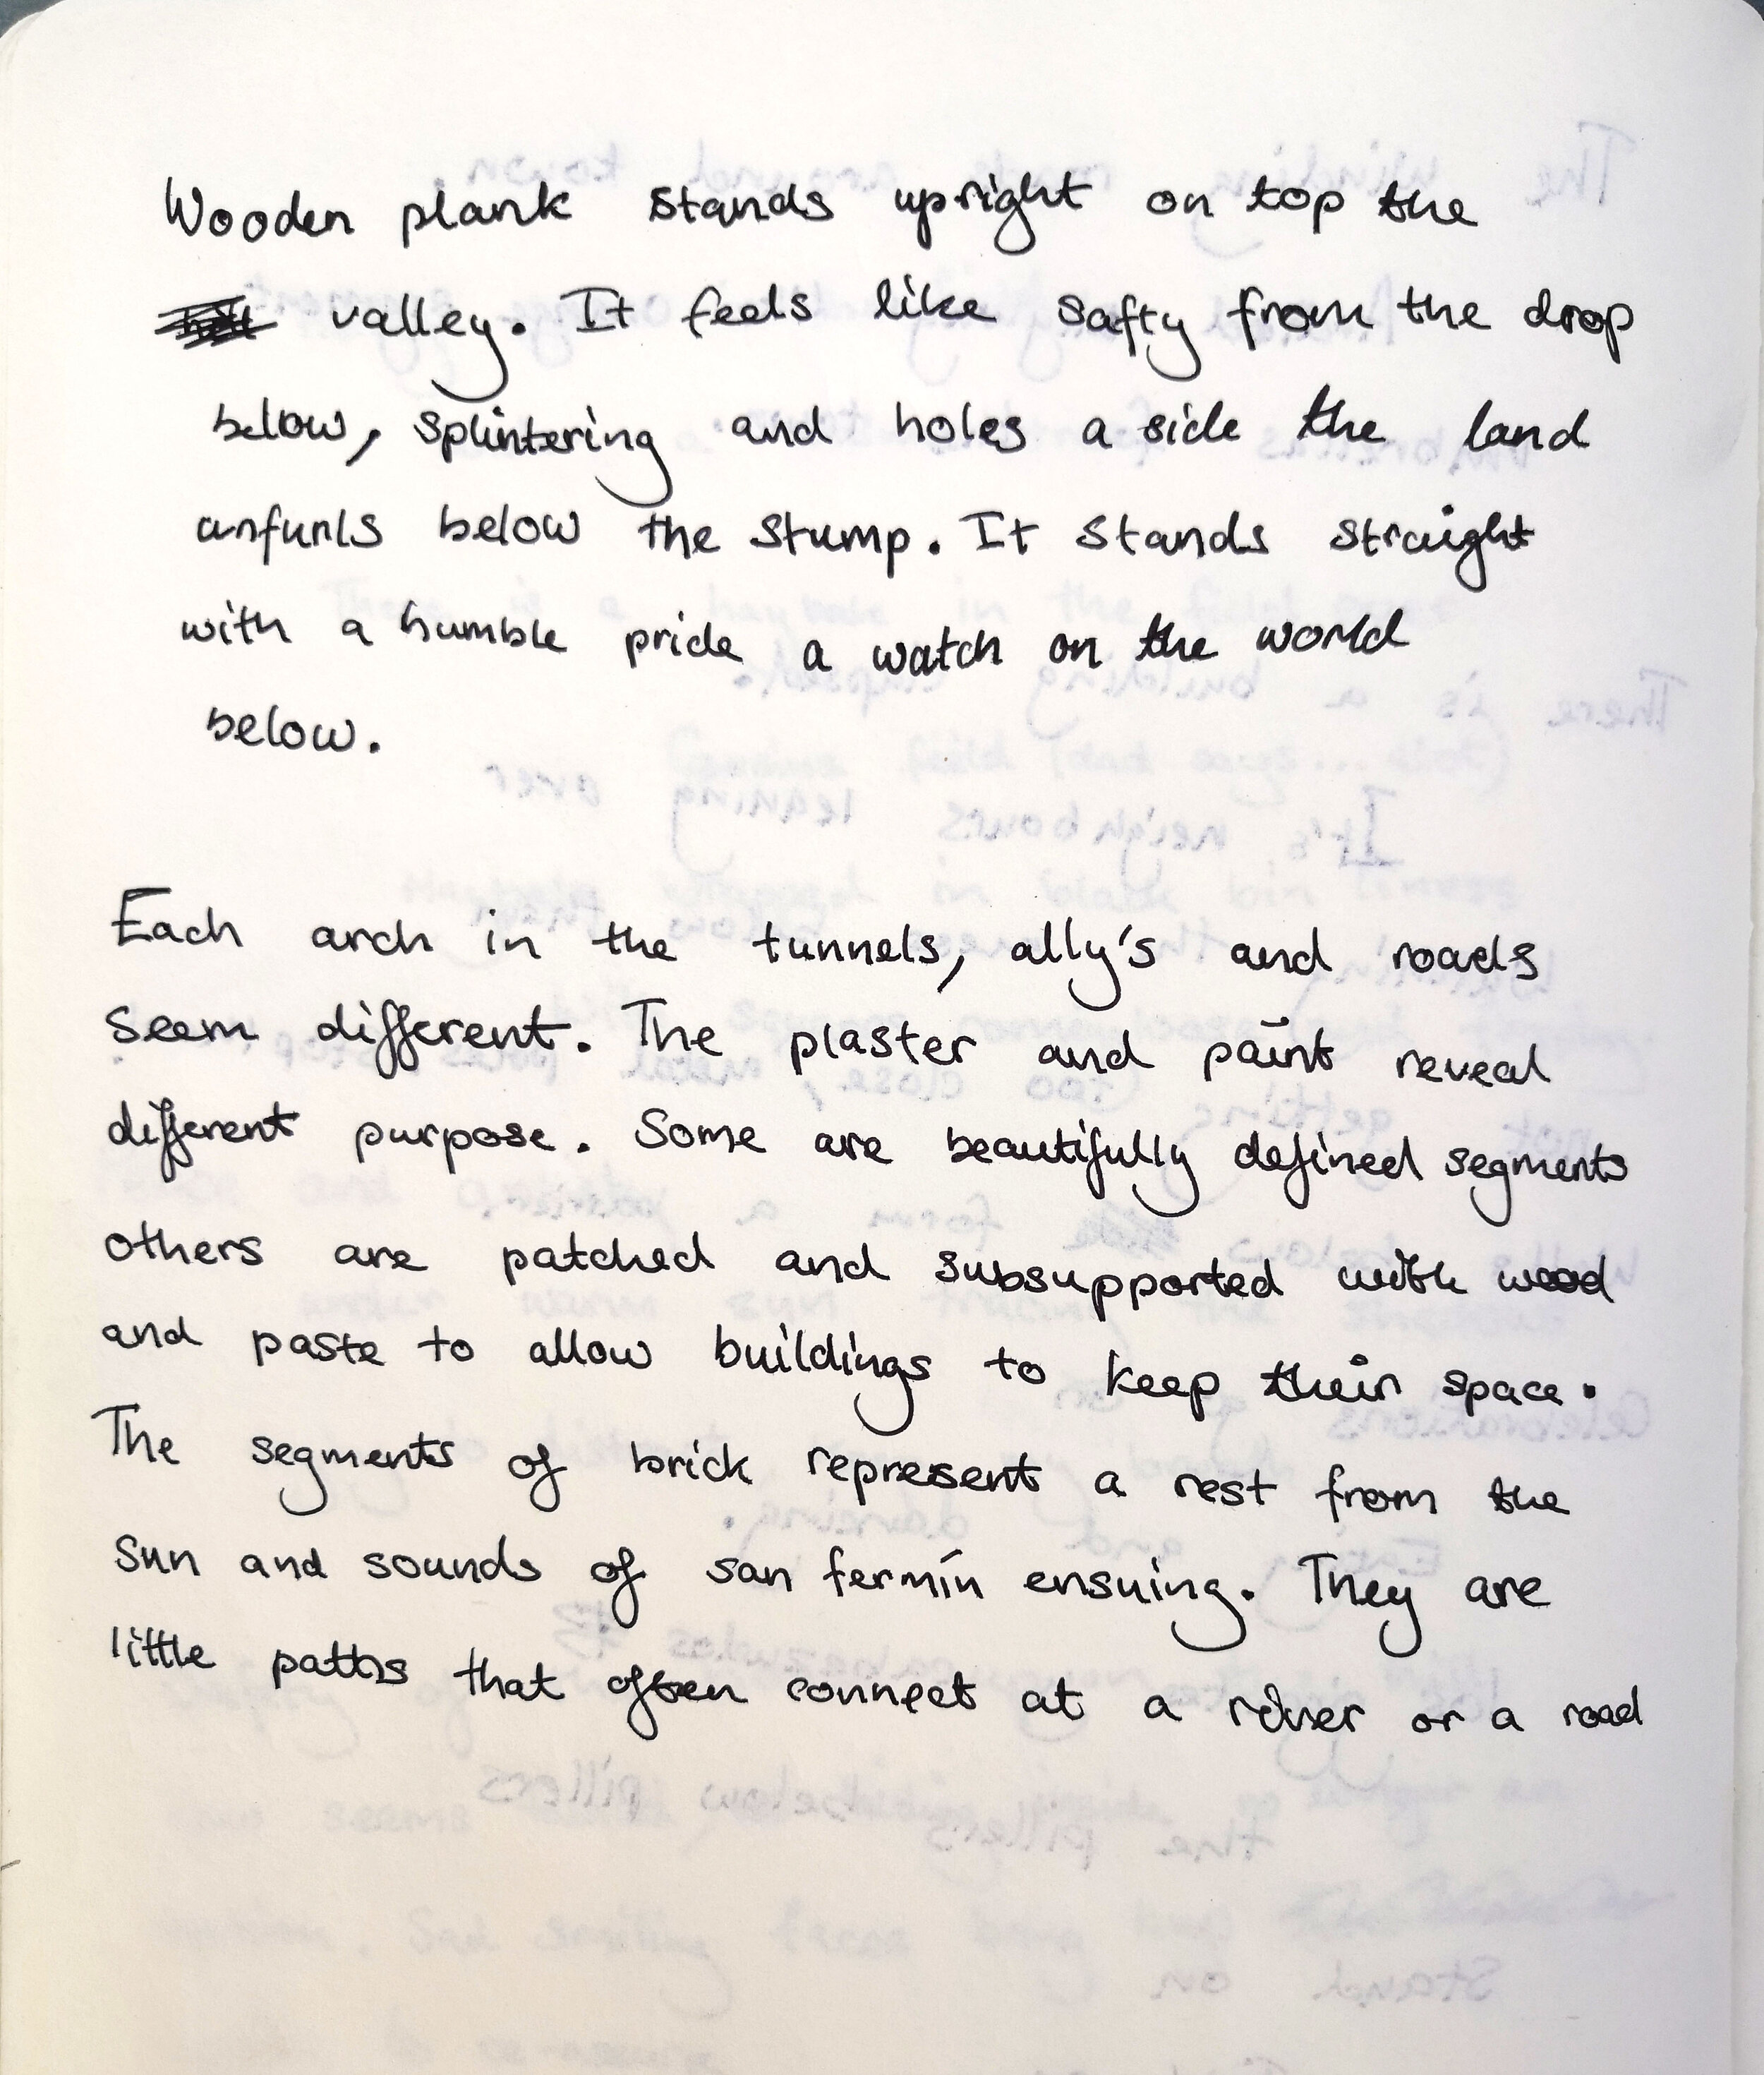 Wooden plank stands upright on top the
valley. It feels like safty from the drop
below, splintering and holes a side the land
unfurls below the stump. It stands straight
with a humble pride a watch on the world
below.
Each arch in the tunnels, ally's and roads
seem different. The plaster and paint reveal
different purpose. Some are beautifully defined segments
others are patched and subsupported with wood
and paste to allow buildings to keep their space.
The segments of brick represent a rest from the
sun and sounds of san fermín ensuing. They are
little paths that often connect at a river or a road